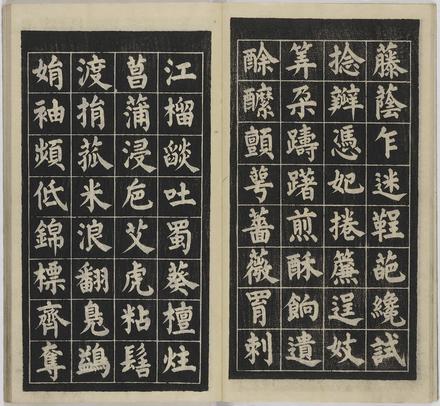 藤蔭乍迷鞓葩纔試
捻瓣憑妃捲簾逞妓
筭朶躊躇煎酥餉遺
酴醿顫萼薔薇罥刺
江榴燄吐蜀葵檀炷
菖蒲浸巵艾虎粘髻
渡捐菰米浪翻鳧鷁
娟袖頻低錦標齊奪